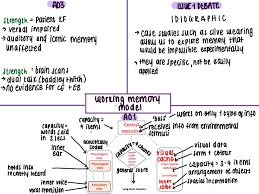 AO3
strength = Patient KF
→ verbal impaired
→ auditory and iconic memory
unaffected
strength = brain scans
→ dual task (baddley + hitch)
→ no evidence for CE + EB
GIVE 1 DEBATE
IDIOGRAPHIC
→ case studies such as clive wearing
allow us to explore memory that
would be impossible experimentally
→ they are specific, not be easily
applied
Working memory
model
AO1
capacity =
4 items
Central
executive
works on only 1 type of info
receives info from environmental
stimuli
capacity =
words said
in 2 secs
acoustically
coded
inner
ear
holds info
recently heard
inner voice
vocal repetition
general store
visual data
form + colour
capacity = 3-4 items
arrangement of objects
spacial information
visual
cache
inner
scribe